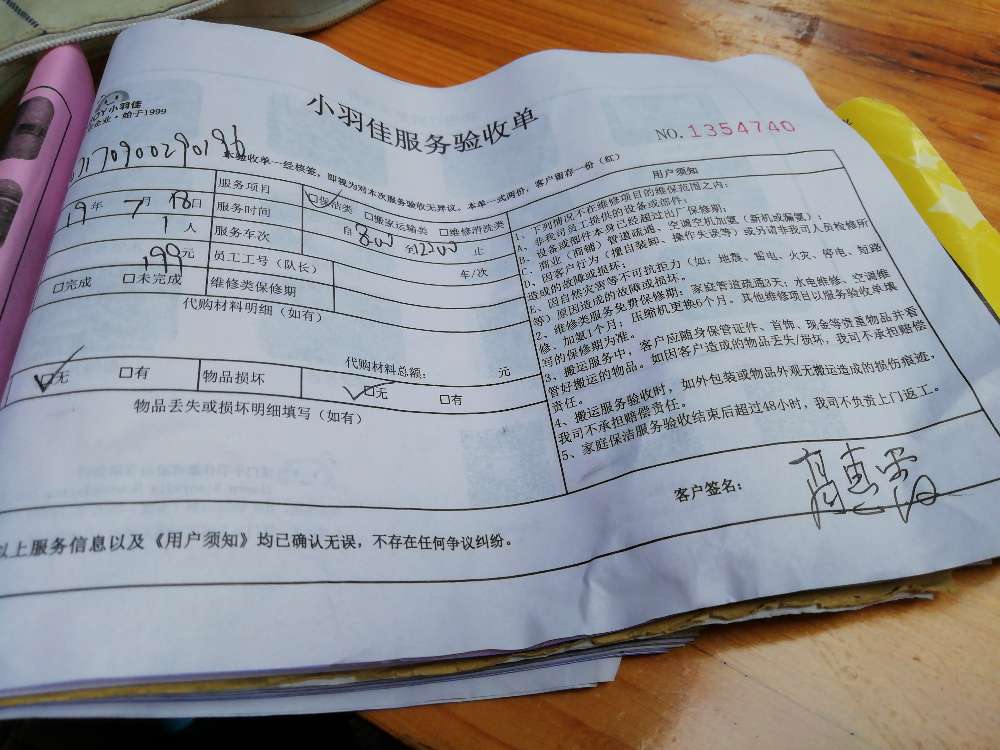 小羽佳
企业·始于1999
小羽佳服务验收单
NO.1354740
本验收单一经核签，即视为对本次服务验收无异议。本单一式两份，客户留存一份（红）
170900290196
服务项目 □保洁类 □搬家运输类 □维修清洗类
19年7月18日 服务时间 自800到1200止
1人 服务车次 车/次
199元 员工工号（队长）
□完成 □未完成 维修类保修期
代购材料明细（如有）
代购材料总额： 元
□无 □有 物品损坏 □无 □有
物品丢失或损坏明细填写（如有）
用户须知
1、下列情况不在维修项目的维保范围之内：
A、非我司员工提供的设备或部件；
B、设备或部件本身已经超过出厂保修期；
C、商业（商铺）管道疏通、空调空机加氨（新机或漏氨）；
D、因客户行为（擅自装卸、操作失误等）或另请非我司人员检修所
造成的故障或损坏；
E、因自然灾害等不可抗拒力（如：地震、雷电、火灾、停电、短路
等）原因造成的故障或损坏。
2、维修类服务免费保修期：家庭管道疏通3天、水电维修、空调维
修、加氨1个月；压缩机更换6个月。其他维修项目以服务验收单填
写的保修期为准。
3、搬运服务中，客户应随身保管证件、首饰、现金等贵重物品并看
管好搬运的物品。如因客户造成的物品丢失/损坏，我司不承担赔偿
责任。
4、搬运服务验收时，如外包装或物品外观无搬运造成的损伤痕迹，
我司不承担赔偿责任。
5、家庭保洁服务验收结束后超过48小时，我司不负责上门返工。
客户签名：
以上服务信息以及《用户须知》均已确认无误，不存在任何争议纠纷。